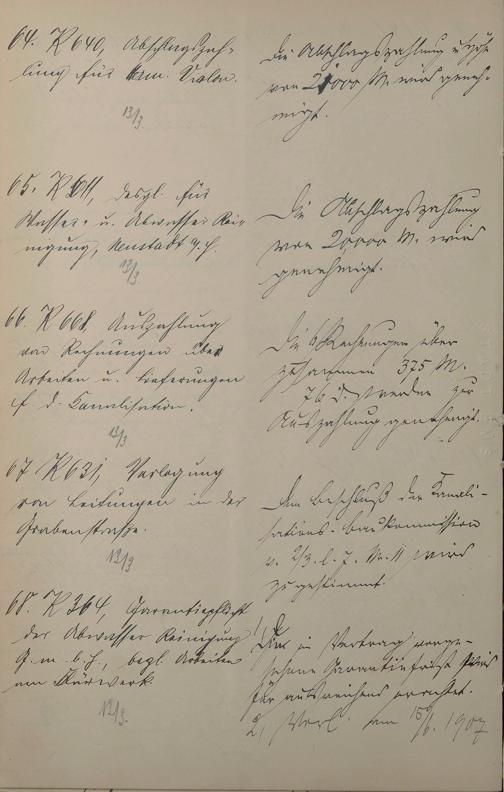 64. K 640, Abschlagszah-
lung für
13/3.
Die Abschlagszahlung
von 2000 M. wird geneh-
migt.
65. K 611, desgl. für
Wasser- u. Abwasser Rei-
nigung, Neustadt a. H.
13/3.
Die Abschlagszahlung
von 20,000 M. wird
genehmigt.
66. K 668, Auszahlung
von Rechnungen über
Arbeiten u. Lieferungen
f. d. Kanalisation.
13/3
Die Rechnungen über
zusammen 375 M.
76 d. werden zur
Auszahlung genehmigt.
67 K 631, Verlegung
von Leitungen in der
Grabenstraße.
13/3
Dem Beschluß der Kanali-
sations-Baukommission
v. 2/3. l. J. No. 11 wird
zugestimmt.
68. K 364, Garantiepflicht
der Abwasser Reinigung
G.m.b.H., bezl. Arbeiten
am Klärwerk.
13/3.
1, Die in Vertrag vorge-
sehene Garantiefrist wird
für ausreichend erachtet.
2, Vorl. am 15/6. 1907